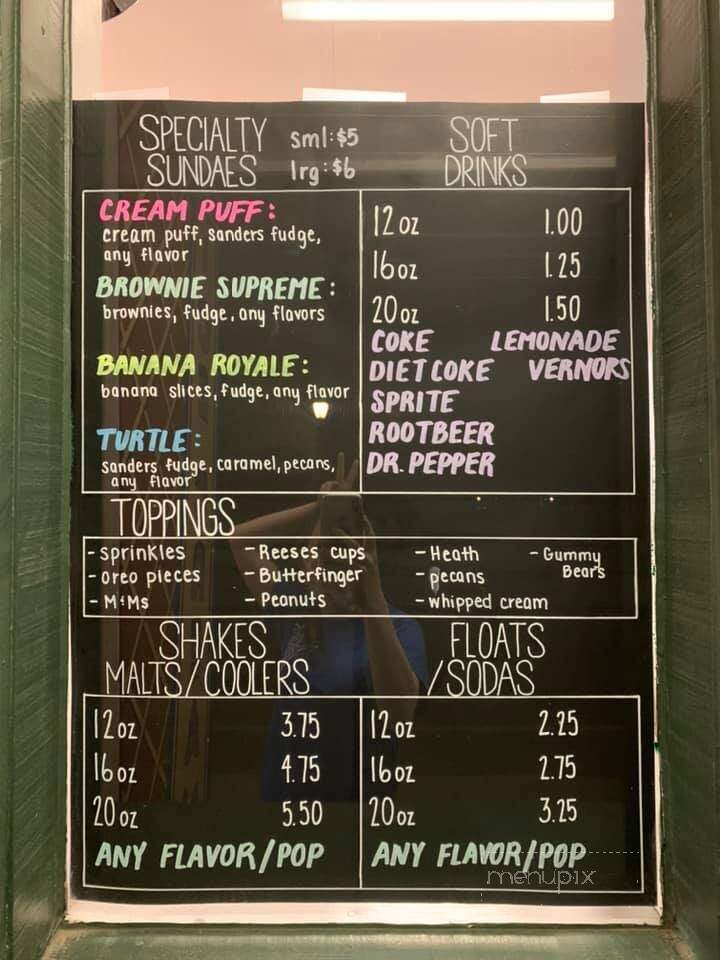 SPECIALTY SUNDAES
sml:$5
lrg:$6
CREAM PUFF:
cream puff, sanders fudge,
any flavor
BROWNIE SUPREME:
brownies, fudge, any flavors
BANANA ROYALE:
banana slices, fudge, any flavor
TURTLE:
sanders fudge, caramel, pecans,
any flavor
SOFT
DRINKS
12 oz 1.00
16 oz 1.25
20 oz 1.50
COKE LEMONADE
DIET COKE VERNORS
SPRITE
ROOTBEER
DR. PEPPER
TOPPINGS
- sprinkles - Reeses cups - Heath - Gummy Bears
- oreo pieces - Butterfinger - pecans
- M&Ms - Peanuts - whipped cream
SHAKES
MALTS/COOLERS
12 oz 3.75
16 oz 4.75
20 oz 5.50
ANY FLAVOR/POP
FLOATS
/SODAS
12 oz 2.25
16 oz 2.75
20 oz 3.25
ANY FLAVOR/POP
menupix